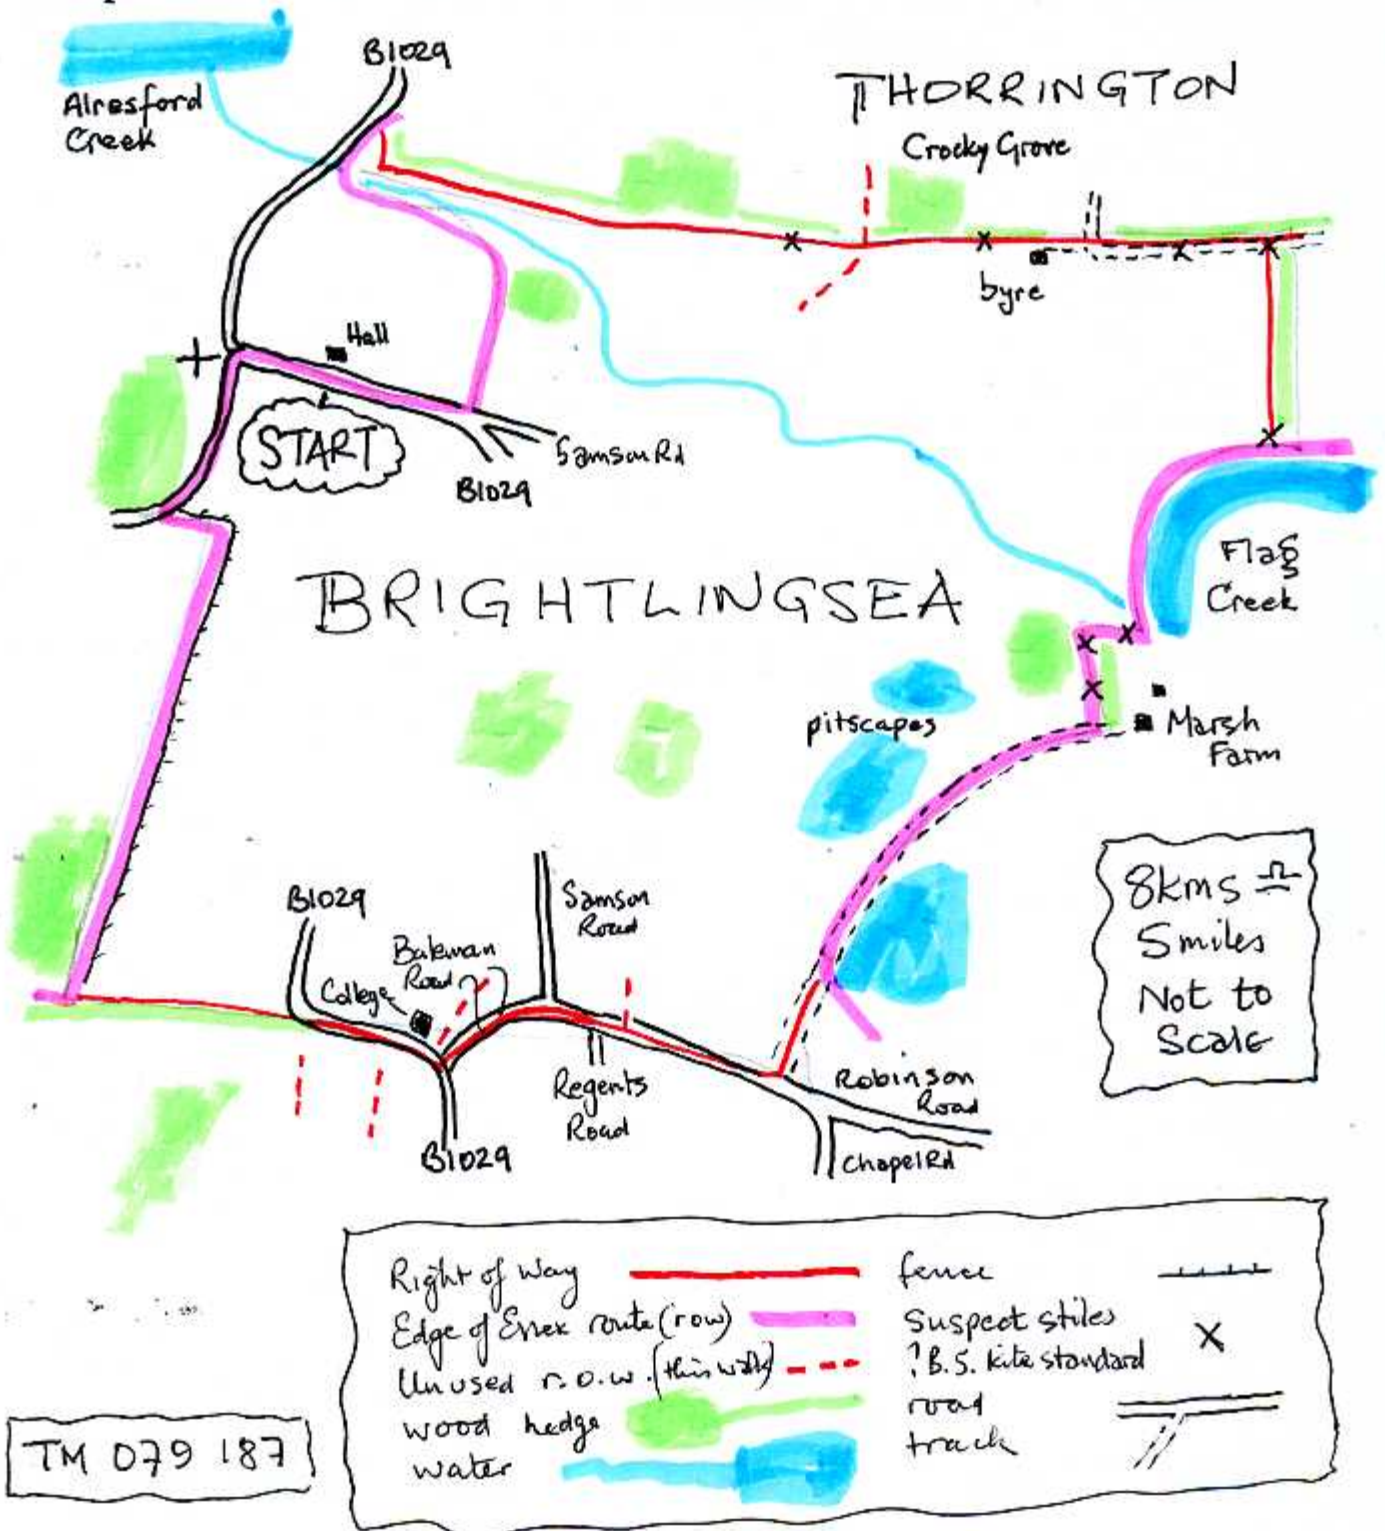 B1029
Alresford
Creek
THORRINGTON
Crocky Grove
byre
Hall
START
Samson Rd
B1029
BRIGHTLINGSEA
Flag
Creek
pitscapes
Marsh
Farm
8kms ≏
5miles
Not to
Scale
B1029
Samson
Road
Bateman
Road
College
Regents
Road
Robinson
Road
Chapel Rd
B1029
Right of Way
Edge of Essex route (row)
Unused r.o.w. (this walk)
wood hedge
water
fence
Suspect stiles
?B.S. kite standard
X
road
track
TM 079 187